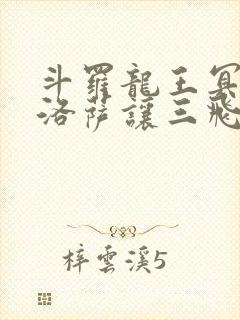 斗羅龍王冥
洛薩讓三飛
梓雲溪5